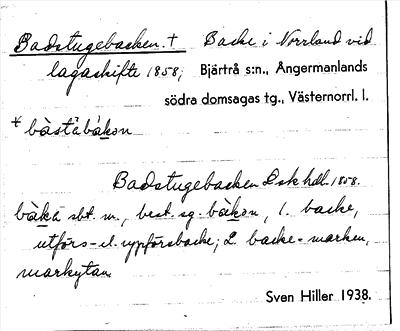 Badstugebacken.† Backe i Norrland vid
lagaskifte 1858; Bjärtrå s:n., Ångermanlands
södra domsagas tg., Västernorrl. l.
† bàstàbákǝn
Badstugebacken Lsk hdl. 1858.
bàkà sbt. m., best. sg. bàkǝn, 1. backe,
utförs- el. uppförsbacke; 2. backe = marken,
markytan.
Sven Hiller 1938.